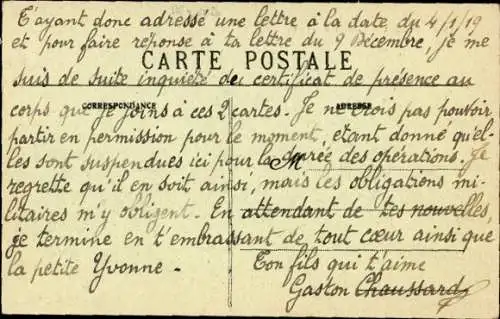 T'ayant donc adressé une lettre à la date du 4/1/19
et pour faire réponse à ta lettre du 9 Décembre, je me
CARTE POSTALE
suis de suite inquiété du certificat de présence au
CORRESPONDANCE
ADRESSE
corps que je joins à ces 2 cartes. Je ne crois pas pouvoir
partir en permission pour le moment, étant donné qu'el-
les sont suspendues ici pour la durée des opérations. Je
M
regrette qu'il en soit ainsi, mais les obligations mi-
litaires m'y obligent. En attendant de tes nouvelles,
je termine en t'embrassant de tout cœur ainsi que
la petite Yvonne -
Ton fils qui t'aime
Gaston Chaussard